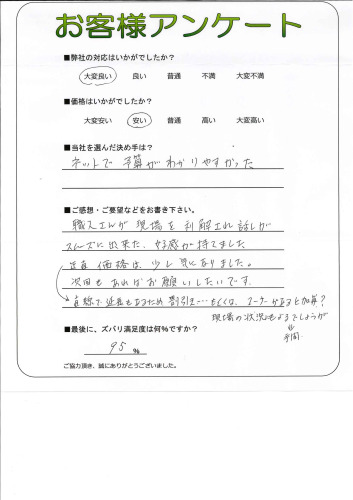 お客様アンケート
■弊社の対応はいかがでしたか？
大変良い 良い 普通 不満 大変不満
■価格はいかがでしたか？
大変安い 安い 普通 高い 大変高い
■当社を選んだ決め手は？
ネットで予算がわかりやすかった
■ご感想・ご要望などをお書き下さい。
職人さんが現場を利解され話しが
スムーズに出来た、好感が持てました
正直価格は少し気になりました。
次回もあればお願いしたいです。
直線で延長もあるため割引き…もしくは、コーナーがあると加算？
現場の状況にもよるでしょうが
■最後に、ズバリ満足度は何％ですか？
95 ％
ご協力頂き、誠にありがとうございました。